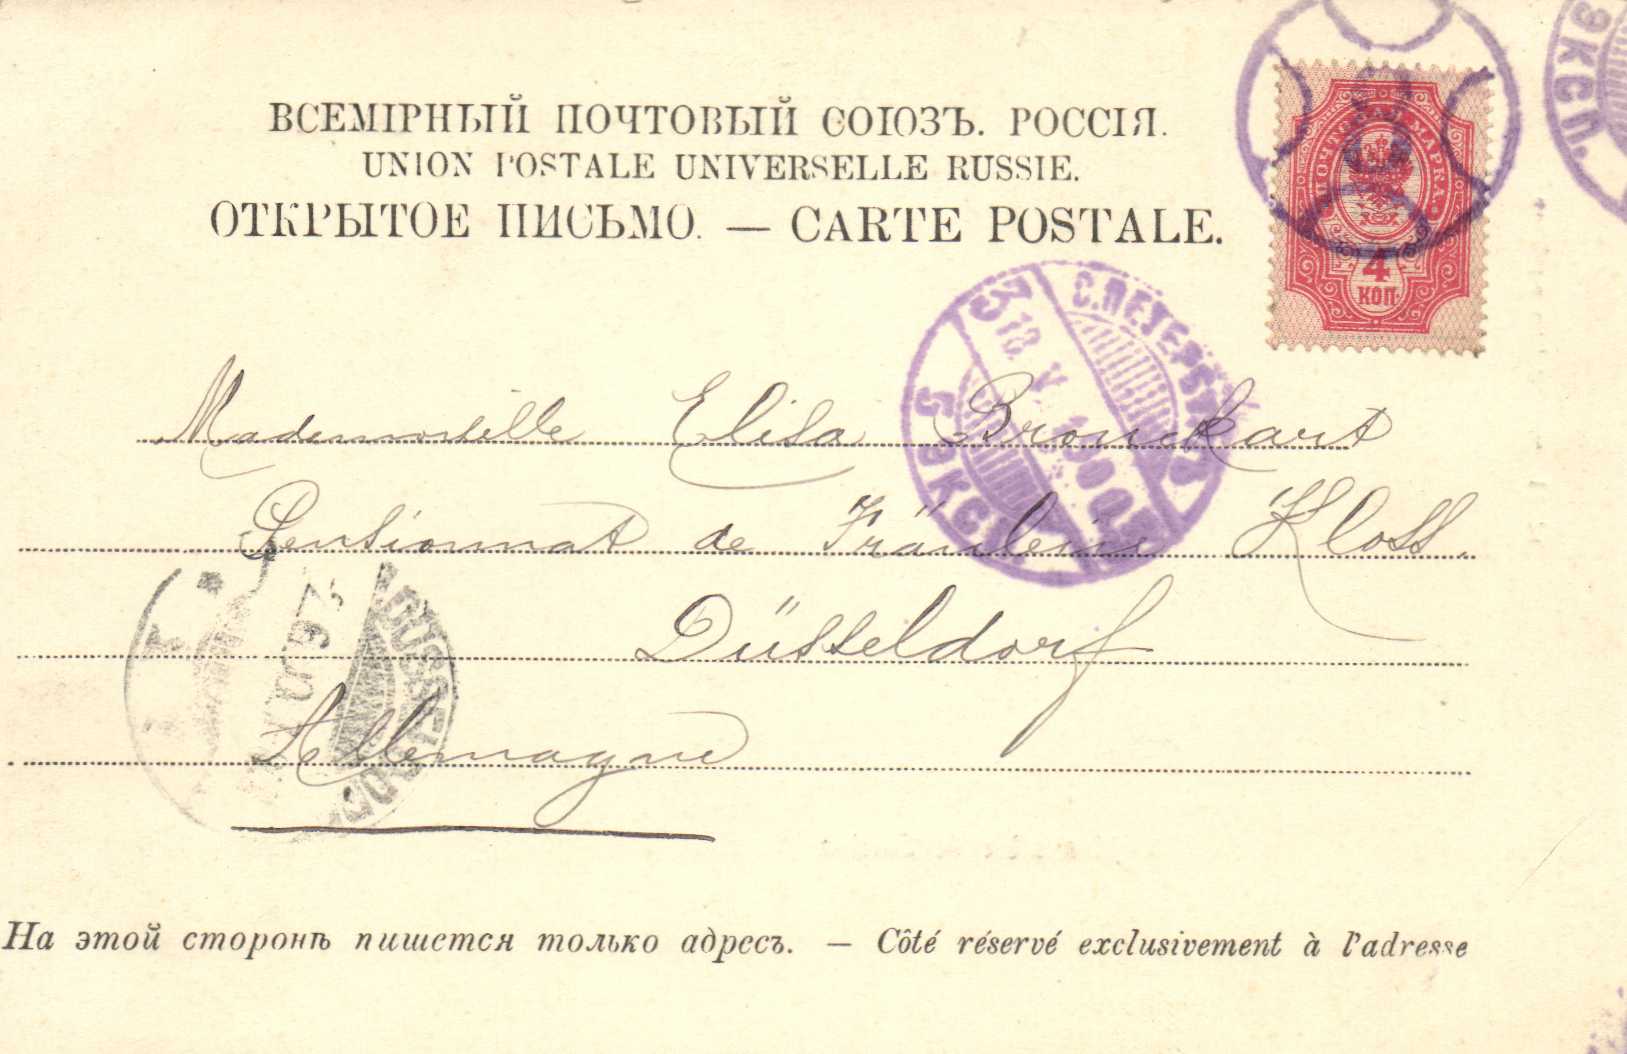 ВСЕМІРНЫЙ ПОЧТОВЫЙ СОЮЗЪ. РОССІЯ.
UNION POSTALE UNIVERSELLE RUSSIE.
ОТКРЫТОЕ ПИСЬМО. — CARTE POSTALE.
ПОЧТОВАЯ МАРКА
4
КОП
ЭКСП.
С.ПЕТЕРБУРГЪ
18.V.1900
5 ЭКСП.
Mademoiselle Elisa Bronckart
Pensionnat de Fräulein Kloss.
Düsseldorf
Allemagne
На этой сторонѣ пишется только адресъ. — Côté réservé exclusivement à l'adresse